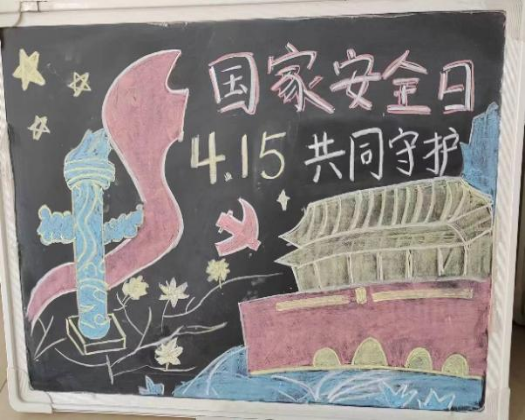 国家安全日
4.15 共同守护